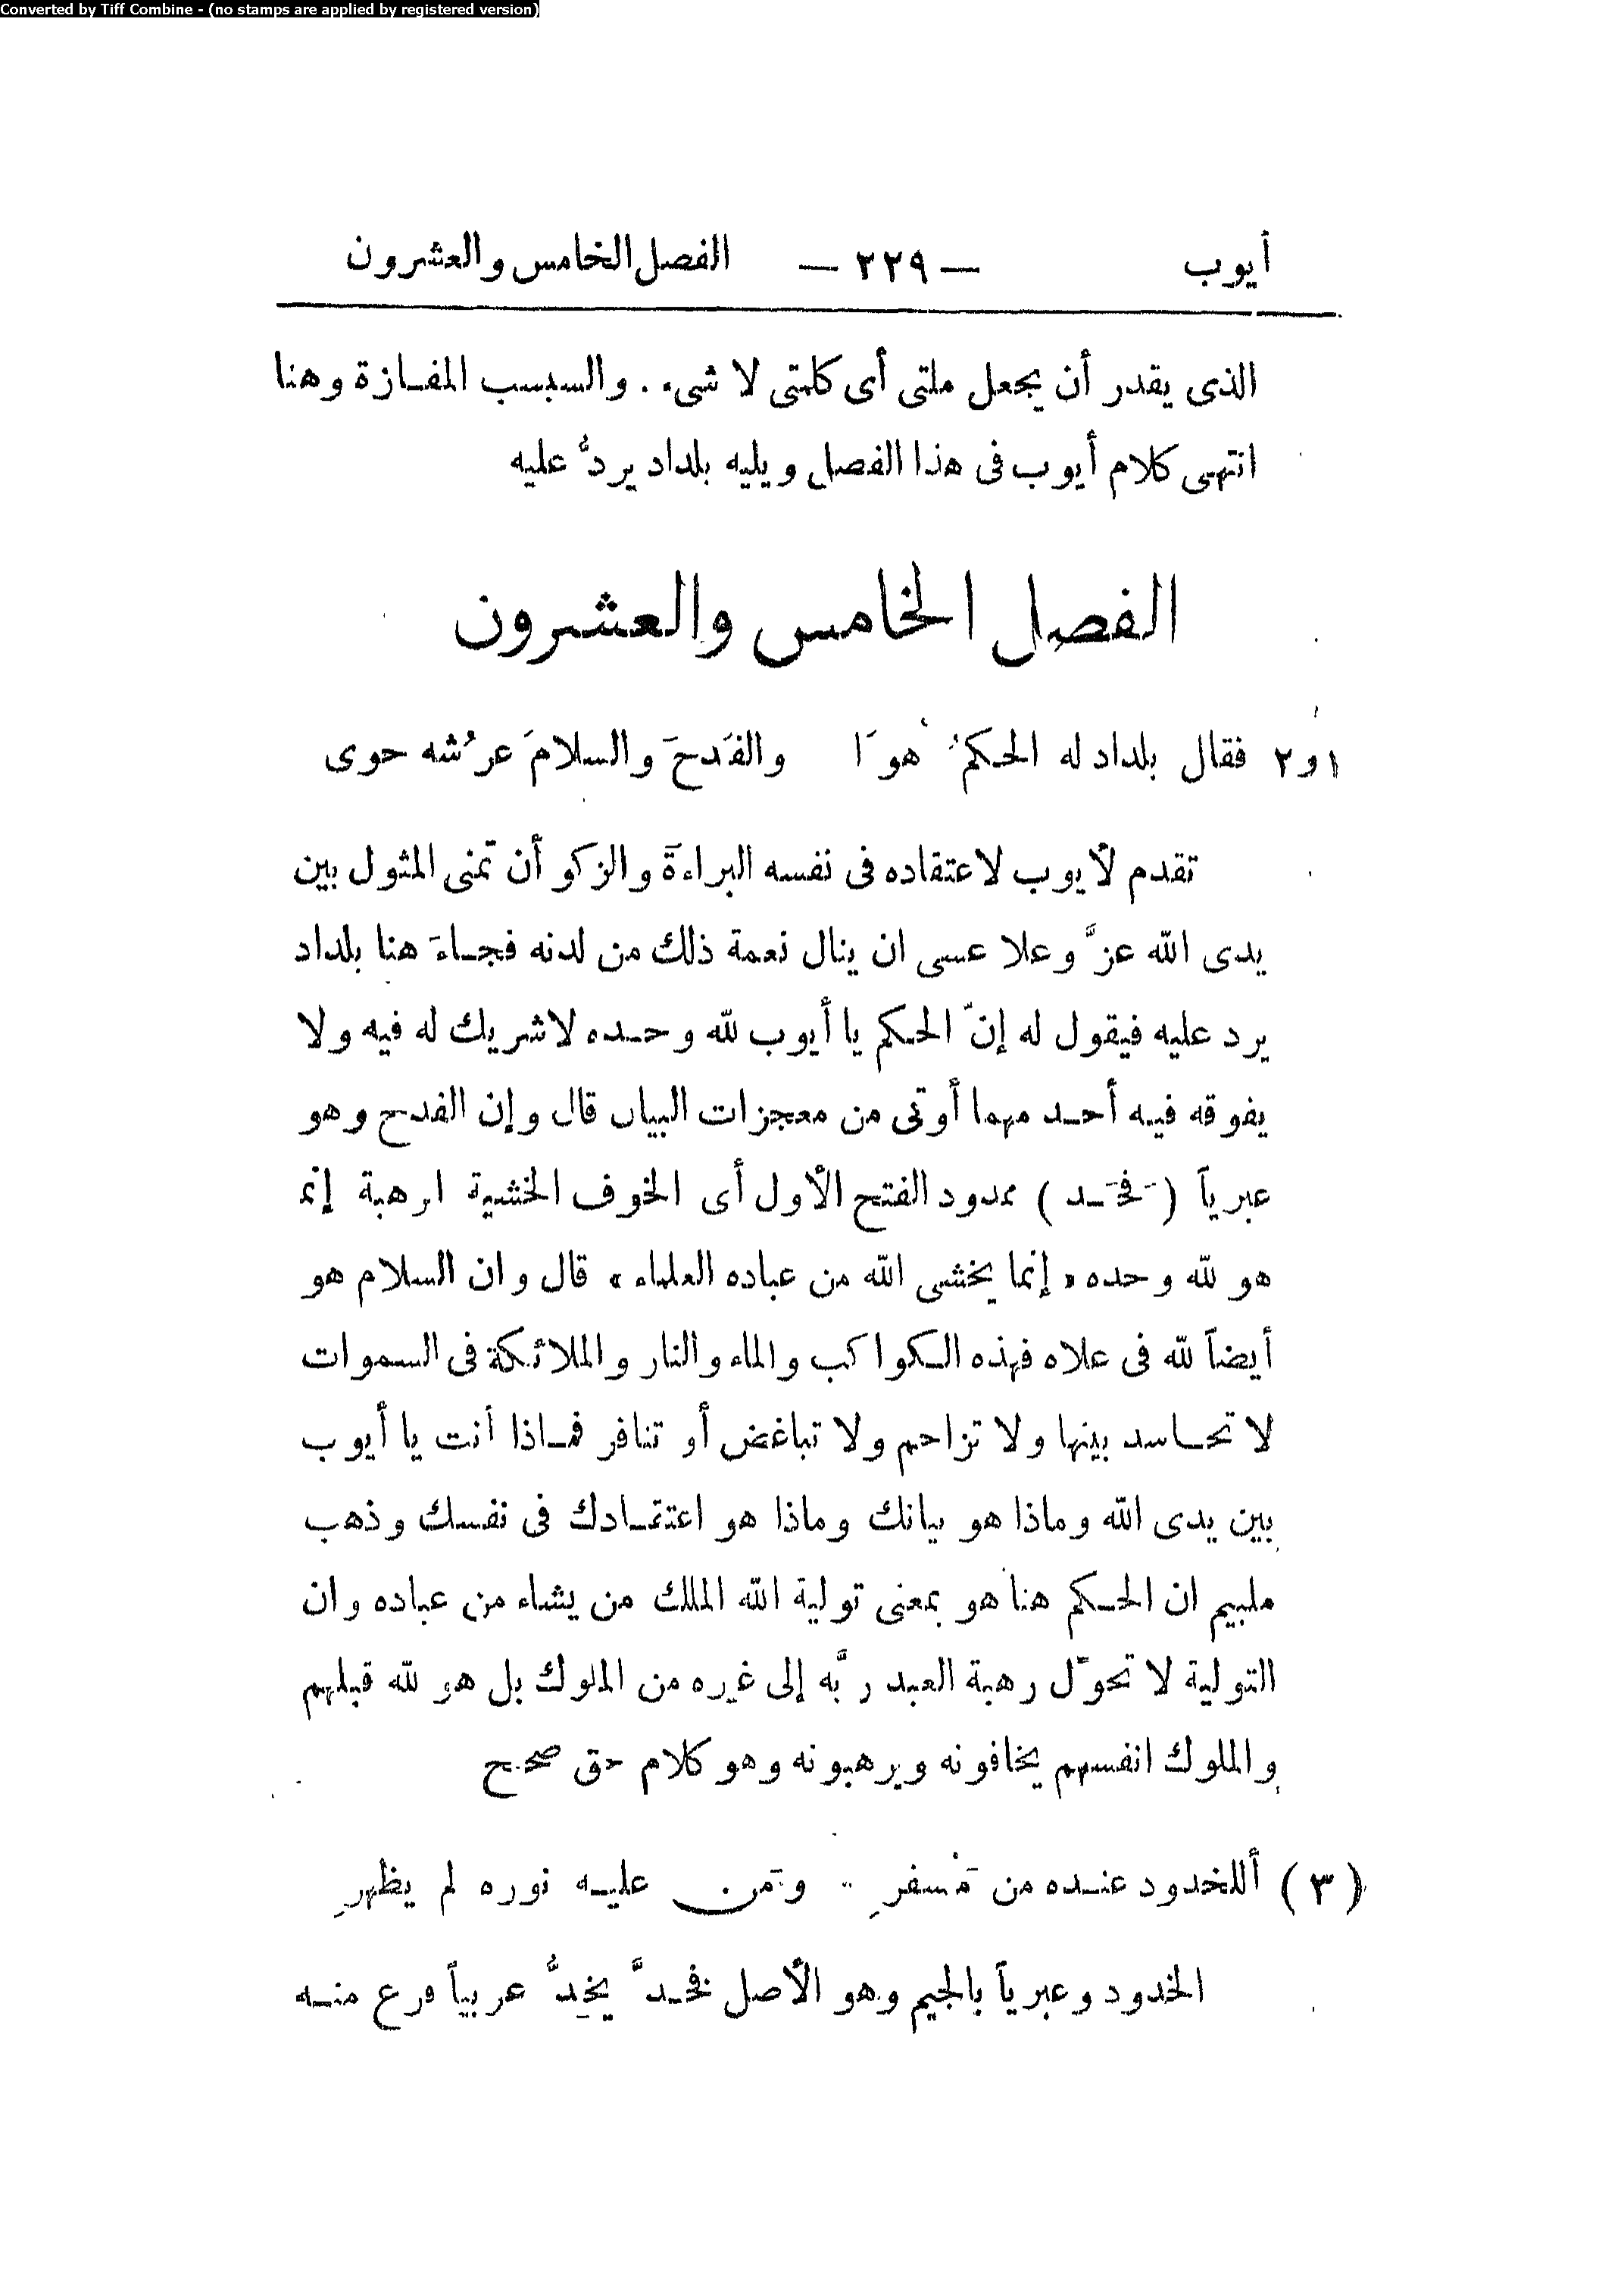 Converted by Tiff Combine - (no stamps are applied by registered version)
أيوب — ٢٢٩ — الفصل الخامس والعشرون
الذى يقدر أن يجعل ملتى أى كلمتى لا شىء . والسبسب المفازة وهنا
انتهى كلام أيوب فى هذا الفصل ويليه بلداد يردُّ عليه
الفصل الخامس والعشرون
١و٢ فقال بلداد له الحكمُ هوَا والفَدحَ والسلامَ عرْشه حوى
تقدم لأيوب لاعتقاده فى نفسه البراءة والزكو أن تمنى المثول بين
يدى الله عزَّ وعلا عسى ان ينال نعمة ذلك من لدنه فجاءَ هنا بلداد
يرد عليه فيقول له إنّ الحكم يا أيوب لله وحده لا شريك له فيه ولا
يفوقه فيه أحد مهما أوتى من معجزات البيان قال وإن الفدح وهو
عبرياً (فَحَد) ممدود الفتح الأول أى الخوف الخشية الرهبة إنما
هو لله وحده « إنما يخشى الله من عباده العلماء » قال وان السلام هو
أيضاً لله فى علاه فهذه الكواكب والماء والنار والملائكة فى السموات
لا تحاسد بينها ولا تزاحم ولا تباغض أو تنافر فماذا أنت يا أيوب
بين يدى الله وماذا هو بيانك وماذا هو اعتقادك فى نفسك وذهب
ملبيم ان الحكم هنا هو بمعنى تولية الله الملك من يشاء من عباده وان
التولية لا تحوّل رهبة العبد ربَّه إلى غيره من الملوك بل هو لله قبلهم
والملوك انفسهم يخافونه ويرهبونه وهو كلام حق صحيح
(٣) أللخدود عنده من مَسْفرِ .. ومن عليه نوره لم يظهرِ
الخدود وعبرياً بالجيم وهو الأصل فخدَّ يخِدُّ عربياً فرع منه